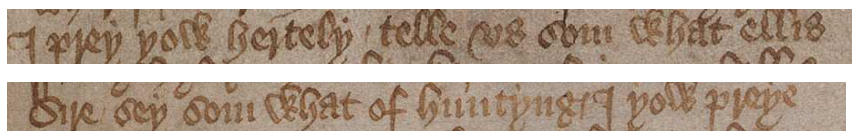 I prey yow hertely / telle us som what ellis
Sire sey som what of huntyng / I yow preye